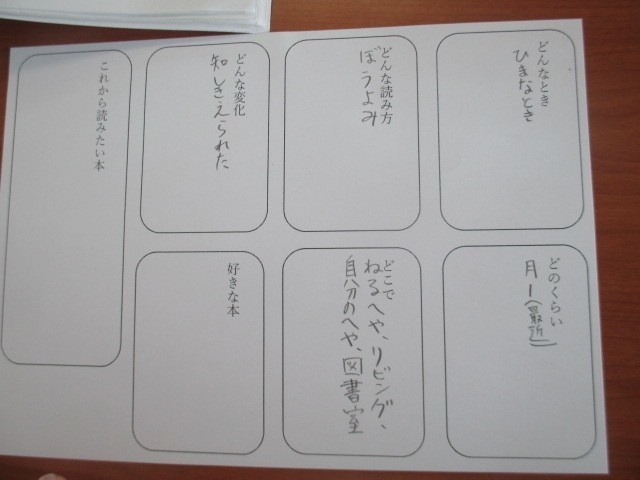 どんなとき
ひまなとき
どのくらい
月1(最近)
どんな読み方
ぼうよみ
どこで
ねるへや、リビング、
自分のへや、図書室
どんな変化
知しきえられた
好きな本
これから読みたい本